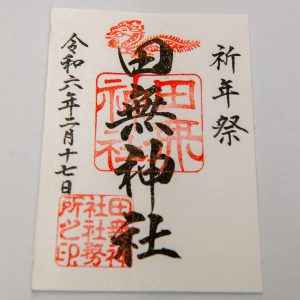 祈年祭
田無神社
令和六年二月十七日
田無神社
田無神
社社務
所之印